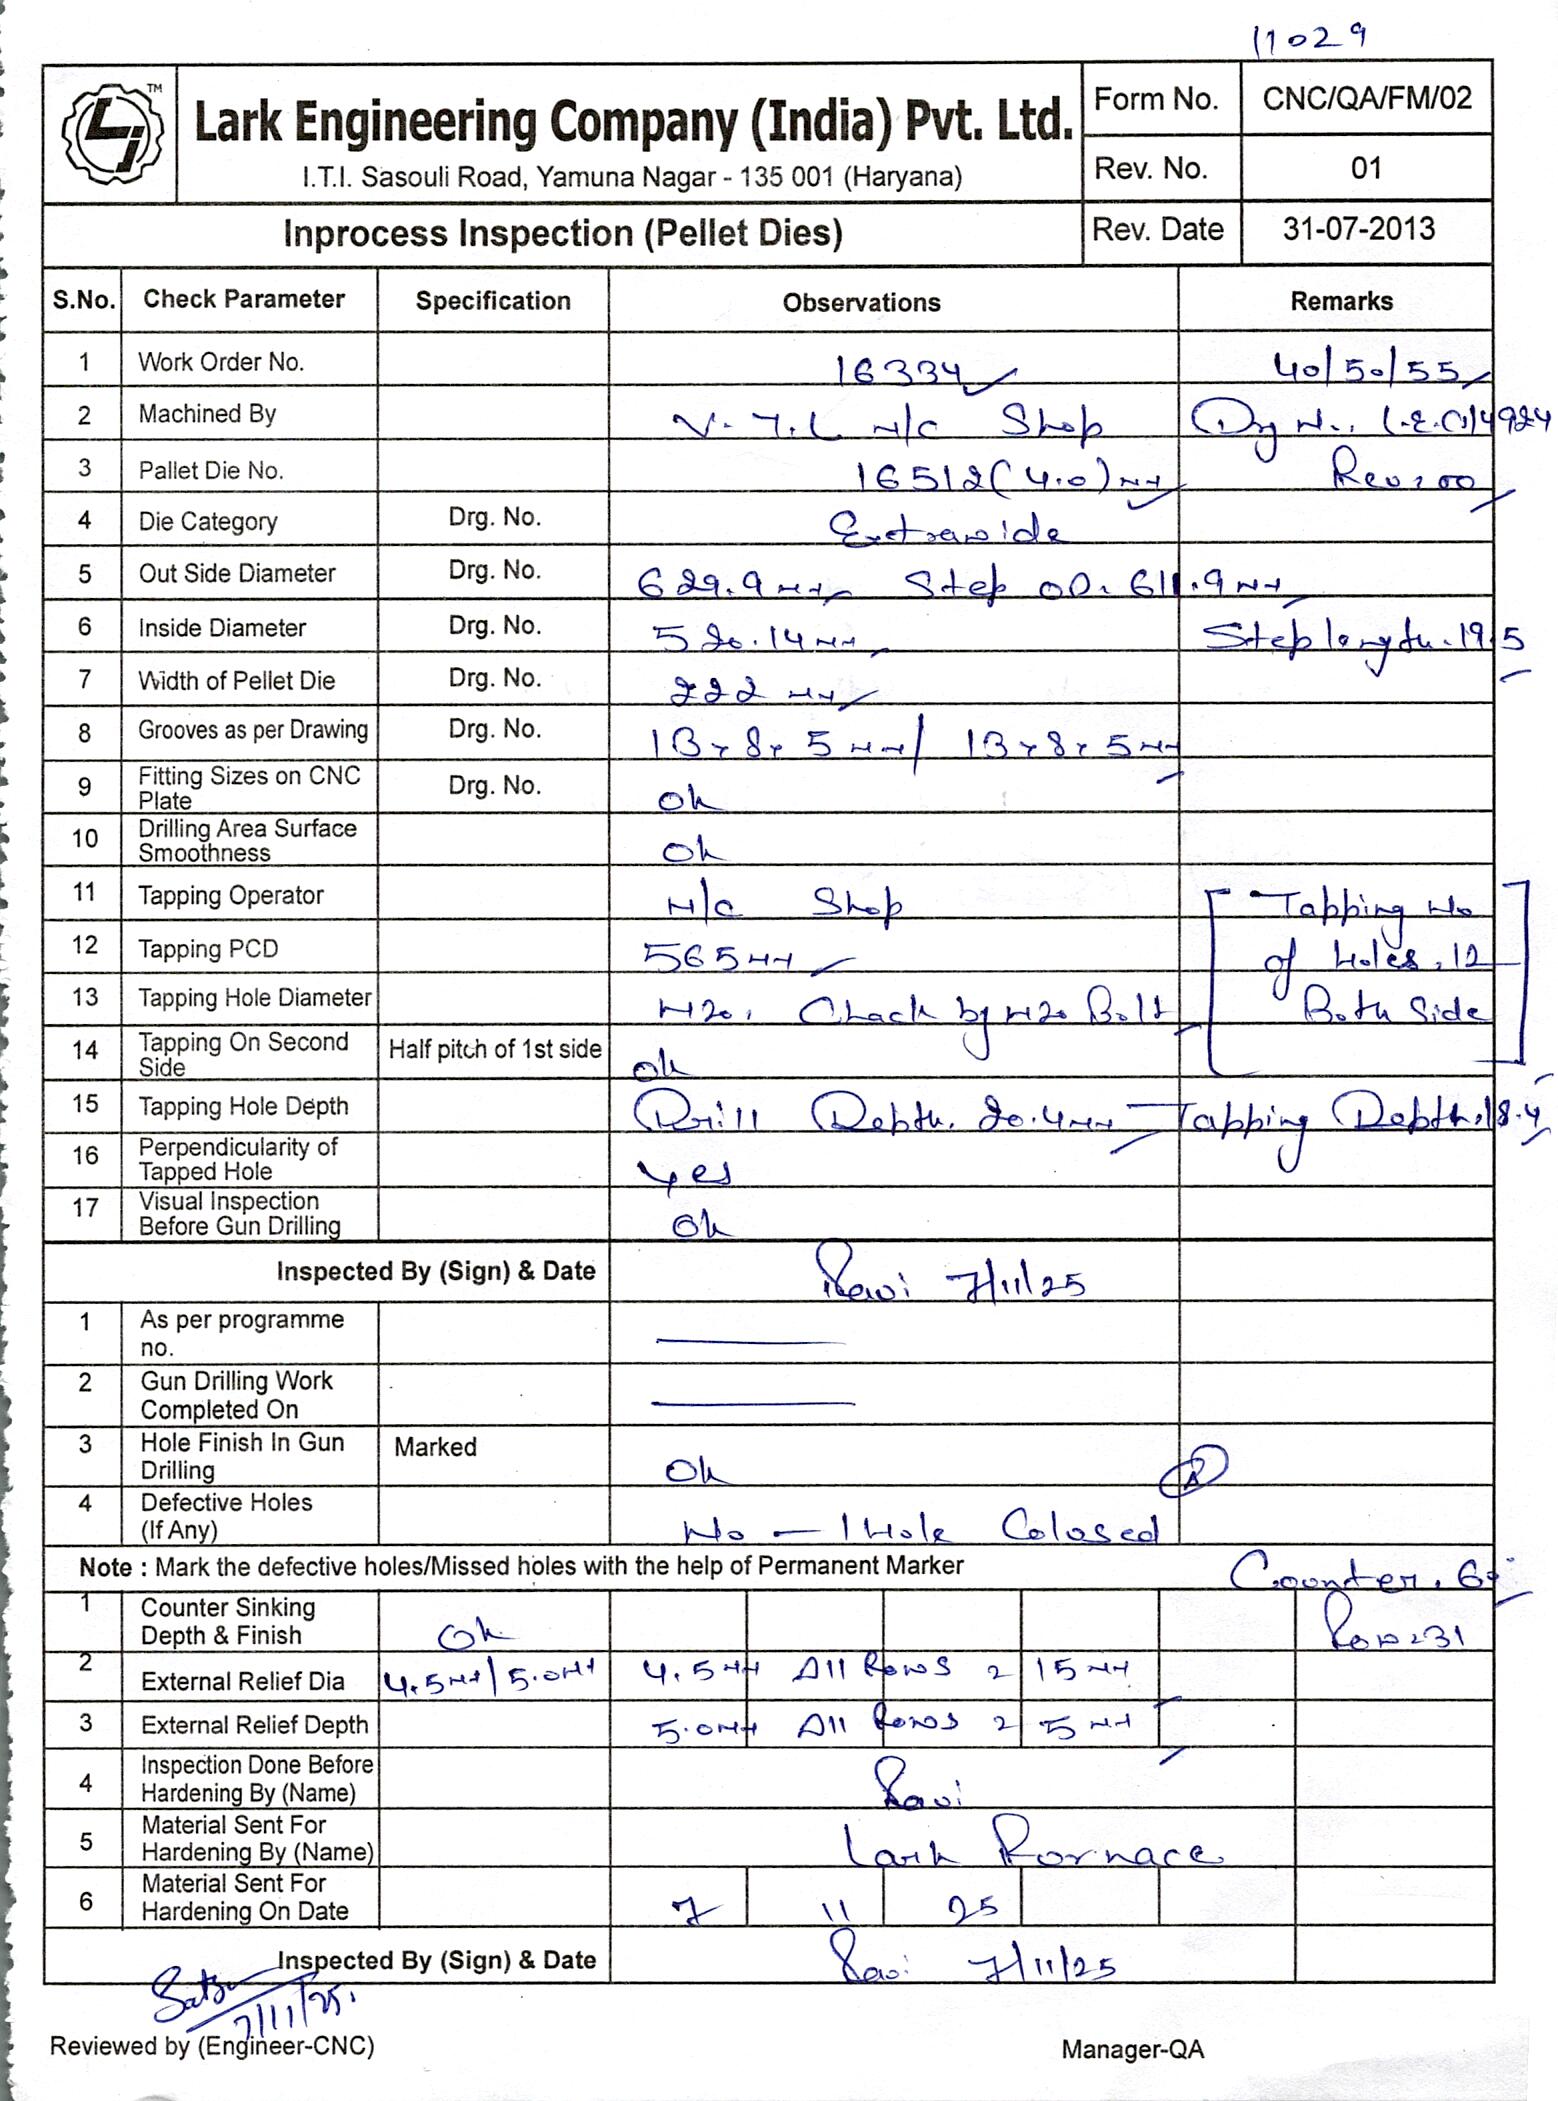 11029
TM
Lark Engineering Company (India) Pvt. Ltd.
I.T.I. Sasouli Road, Yamuna Nagar - 135 001 (Haryana)
Form No. CNC/QA/FM/02
Rev. No. 01
Inprocess Inspection (Pellet Dies) Rev. Date 31-07-2013
S.No. Check Parameter Specification Observations Remarks
1 Work Order No. 16334 40/50/55
2 Machined By V.T.L M/C Shop Drg No. L.E.C/14924
3 Pallet Die No. 16512 (4.0) MM Rev:00
4 Die Category Drg. No. Extrawide
5 Out Side Diameter Drg. No. 629.9 MM Step OD. 611.9 MM
6 Inside Diameter Drg. No. 520.14 MM Step length. 19.5
7 Width of Pellet Die Drg. No. 222 MM
8 Grooves as per Drawing Drg. No. 13x8x5 MM/ 13x8x5 MM
9 Fitting Sizes on CNC Plate Drg. No. Ok
10 Drilling Area Surface Smoothness Ok
11 Tapping Operator M/C Shop Tapping No
12 Tapping PCD 565 MM of Holes. 12
13 Tapping Hole Diameter M20. Chack by M20 Bolt Both Side
14 Tapping On Second Side Half pitch of 1st side Ok
15 Tapping Hole Depth Drill Depth. 20.4 MM Tapping Depth. 18.4
16 Perpendicularity of Tapped Hole Yes
17 Visual Inspection Before Gun Drilling Ok
Inspected By (Sign) & Date Ravi 7/11/25
1 As per programme no.
2 Gun Drilling Work Completed On
3 Hole Finish In Gun Drilling Marked Ok
4 Defective Holes (If Any) No - 1 Hole Colosed
Note : Mark the defective holes/Missed holes with the help of Permanent Marker Counter. 60°
1 Counter Sinking Depth & Finish Ok Row=31
2 External Relief Dia 4.5MM/5.0MM 4.5 MM All Rows = 15 MM
3 External Relief Depth 5.0MM All Rows = 5 MM
4 Inspection Done Before Hardening By (Name) Ravi
5 Material Sent For Hardening By (Name) Lark Fornace
6 Material Sent For Hardening On Date 7 11 25
Inspected By (Sign) & Date Ravi 7/11/25
7/11/25.
Reviewed by (Engineer-CNC) Manager-QA